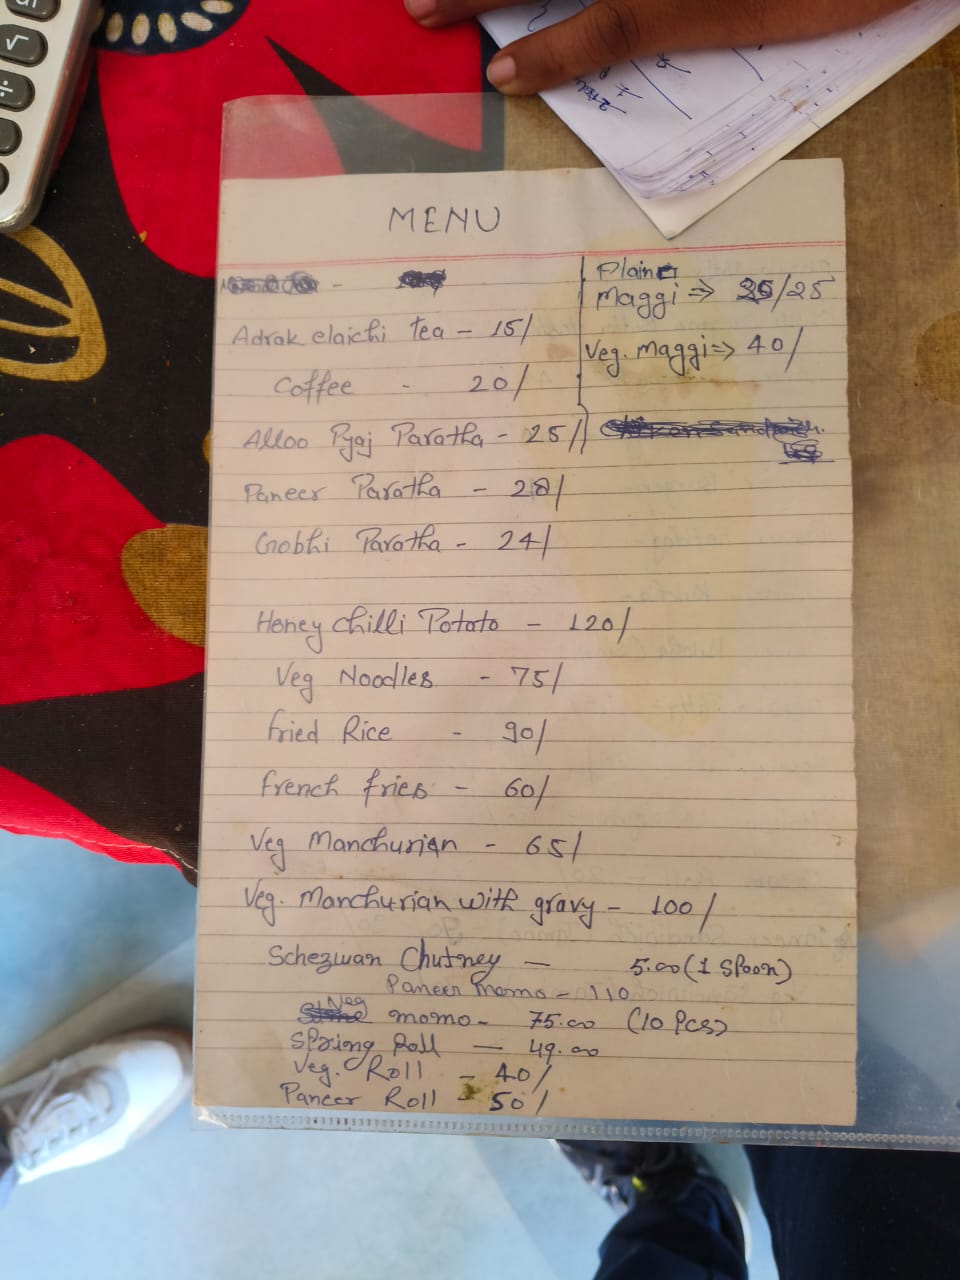 MENU
Adrak elaichi tea - 15/
Coffee - 20/
Alloo Pyaj Paratha - 25/
Paneer Paratha - 28/
Gobhi Paratha - 24/
Honey chilli Potato - 120/
Veg Noodles - 75/
fried Rice - 90/
french fries - 60/
Veg Manchurian - 65/
Veg. Manchurian with gravy - 100/
Schezwan Chutney - 5.00 (1 Spoon)
Paneer momo - 110
Veg momo - 75.00 (10 Pcs)
Spring Roll - 49.00
Veg. Roll - 40/
Paneer Roll - 50/
Plain
Maggi => /25
Veg. Maggi => 40/